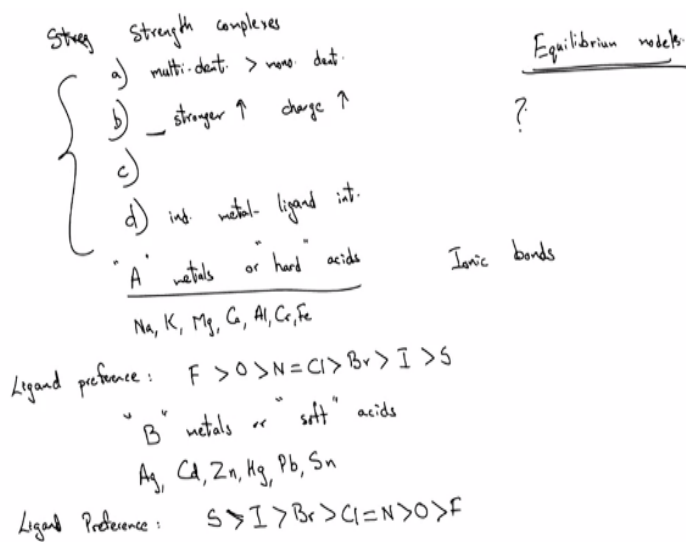 Streg Strength complexes
Equilibrium models.
a) multi-dent. > mono. dent.
b) _ stronger ↑ charge ↑
?
c)
d) ind. metal-ligand int.
"A" metals or "hard" acids
Ionic bonds
Na, K, Mg, Ca, Al, Cr, Fe
Ligand preference: F > O > N = Cl > Br > I > S
"B" metals or "soft" acids
Ag, Cd, Zn, Hg, Pb, Sn
Ligand Preference: S > I > Br > Cl = N > O > F